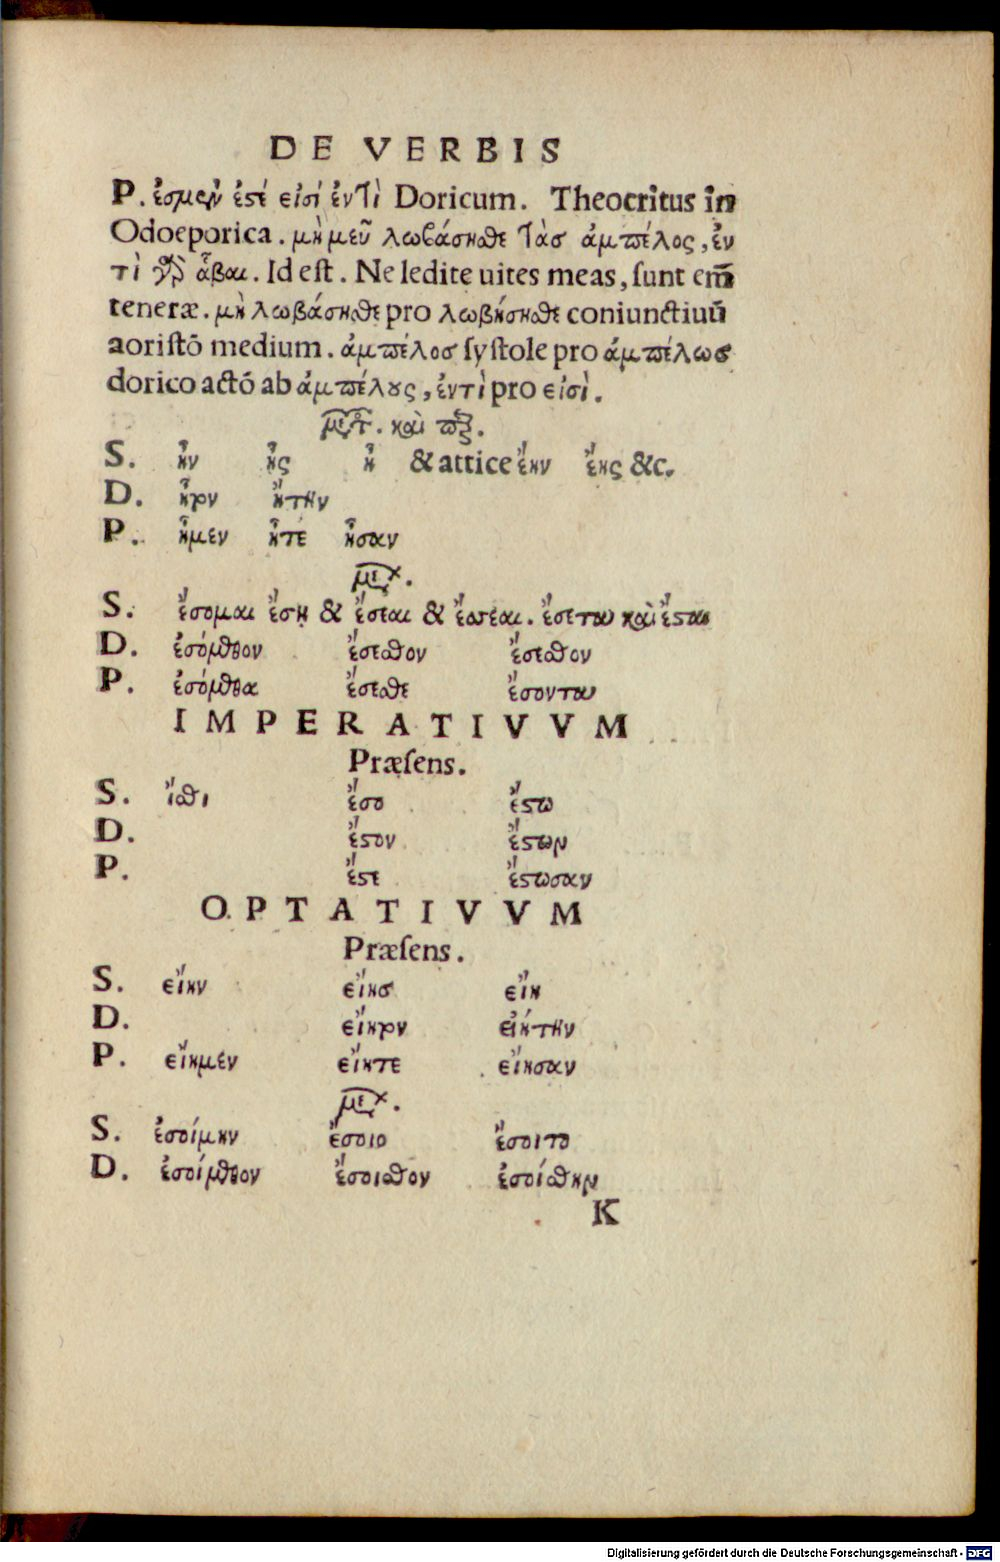 DE VERBIS
P. ἐσμὲν ἐστέ εἰσί ἐντὶ Doricum. Theocritus in
Odoeporica. μὴ μευ λωβάσησθε τὰσ ἀμπέλος, ἐν
τὶ γὰρ ἇβαι. Id est. Ne ledite uites meas, sunt em̃
teneræ. μὴ λωβάσησθε pro λωβήσησθε coniunctiuũ
aoristõ medium. ἀμπέλοσ systole pro ἀμπέλωσ
dorico actõ ab ἀμπέλους, ἐντὶ pro εἰσὶ.
καὶ
S. ἦν ἦς ἦ & attice ἔην ἔης &c.
D. ἦτον ἤτην
P. ἦμεν ἦτέ ἦσαν
S. ἔσομαι ἔσῃ & ἔσεαι & ἔσται καὶ
D. ἐσόμεθον ἔσεσθον ἔσεσθον
P. ἐσόμεθα ἔσεσθε ἔσονται
IMPERATIVVM
Præsens.
S. ἴσθι ἔσο ἔστω
D. ἔστον ἔστων
P. ἔστε ἔστωσαν
OPTATIVVM
Præsens.
S. εἴην εἴησ εἴη
D. εἴητον εἰήτην
P. εἴημεν εἴητε εἴησαν
S. ἐσοίμην ἔσοιο ἔσοιτο
D. ἐσοίμεθον ἔσοισθον ἐσοίσθην
K
Digitalisierung gefördert durch die Deutsche Forschungsgemeinschaft - DFG